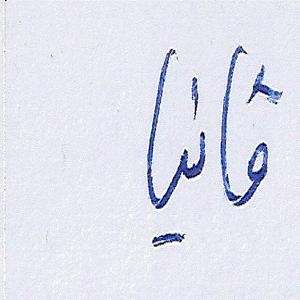 قانيا